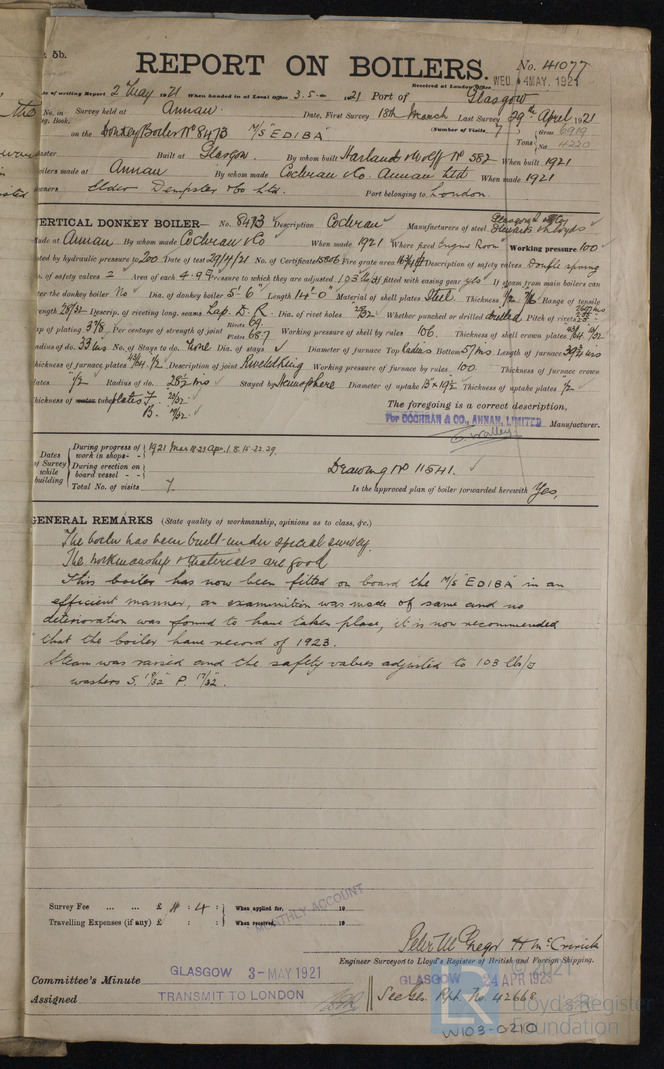 5b.
REPORT ON BOILERS.
No. 41077
Received at London Office WED. 4 MAY. 1921
of writing Report 2 May 1921 When handed in at Local Office 3.5. 1921 Port of Glasgow
No. in Survey held at Annan Date, First Survey 18th March Last Survey 29th April 1921
g. Book.
on the Donkey Boiler No 8473 M/S "EDIBA" (Number of Visits 7) Gross 6919
Tons Net 4220
Master Built at Glasgow By whom built Harland & Wolff No 582 When built 1921
oilers made at Annan By whom made Cochran & Co. Annan Ltd When made 1921
wners Elder Dempster & Co Ltd. Port belonging to London.
VERTICAL DONKEY BOILER— No. 8473 Description Cochran Manufacturers of steel Stewarts & Lloyds
Made at Annan By whom made Cochran & Co When made 1921 Where fixed Engine Room Working pressure 100
ted by hydraulic pressure to 200 Date of test 29/4/21 No. of Certificate 15816 Fire grate area Description of safety valves Double spring
o. of safety valves 2 Area of each 4.9 Pressure to which they are adjusted 103 lbs If fitted with easing gear yes If steam from main boilers can
er the donkey boiler No Dia. of donkey boiler 5'6" Length 14'-0" Material of shell plates Steel Thickness Range of tensile
ength 28/32 Descrip. of riveting long. seams Lap. D. R. Dia. of rivet holes Whether punched or drilled drilled Pitch of rivets
ap of plating 3 7/8 Per centage of strength of joint Rivets 69 Plates 68.7 Working pressure of shell by rules 106. Thickness of shell crown plates
adius of do. 33 ins No. of Stays to do. None Dia. of stays Diameter of furnace Top radius Bottom 57 ins Length of furnace 39 1/2 ins
hickness of furnace plates Description of joint Riveted Ring Working pressure of furnace by rules 100 Thickness of furnace crown
lates 1/2 Radius of do. 28 1/2 ins Stayed by Hemisphere Diameter of uptake 15" x 19 1/2 Thickness of uptake plates 1/2
hickness of water tubes plates F. 20/32
B. 19/32
The foregoing is a correct description,
For COCHRAN & CO., ANNAN, LIMITED Manufacturer.
Dates of Survey while building
During progress of work in shops - - 1921 Mar 18.23 Apr. 1. 8. 15. 22. 29.
During erection on board vessel - -
Total No. of visits 7.
Drawing No 11541.
Is the approved plan of boiler forwarded herewith Yes.
GENERAL REMARKS (State quality of workmanship, opinions as to class, &c.)
The boiler has been built under special survey.
The workmanship & materials are good
This boiler has now been fitted on board the M/S "EDIBA" in an
efficient manner, an examination was made of same and no
deterioration was found to have taken place, it is now recommended
that the boiler have record of 1923.
Steam was raised and the safety valves adjusted to 103 lbs/□
washers S. 19/32" P. 17/32".
Survey Fee ... ... £ 4 : 4 : When applied for, 19
Travelling Expenses (if any) £ : : When received, 19
MONTHLY ACCOUNT
Peter McGregor
Engineer Surveyor to Lloyd's Register of British and Foreign Shipping.
Committee's Minute GLASGOW 3-MAY 1921 GLASGOW 24 APR 1923
Assigned TRANSMIT TO LONDON See Ge. Rpt. No. 42668
© 2021
Lloyd's Register
Foundation
W103-0210